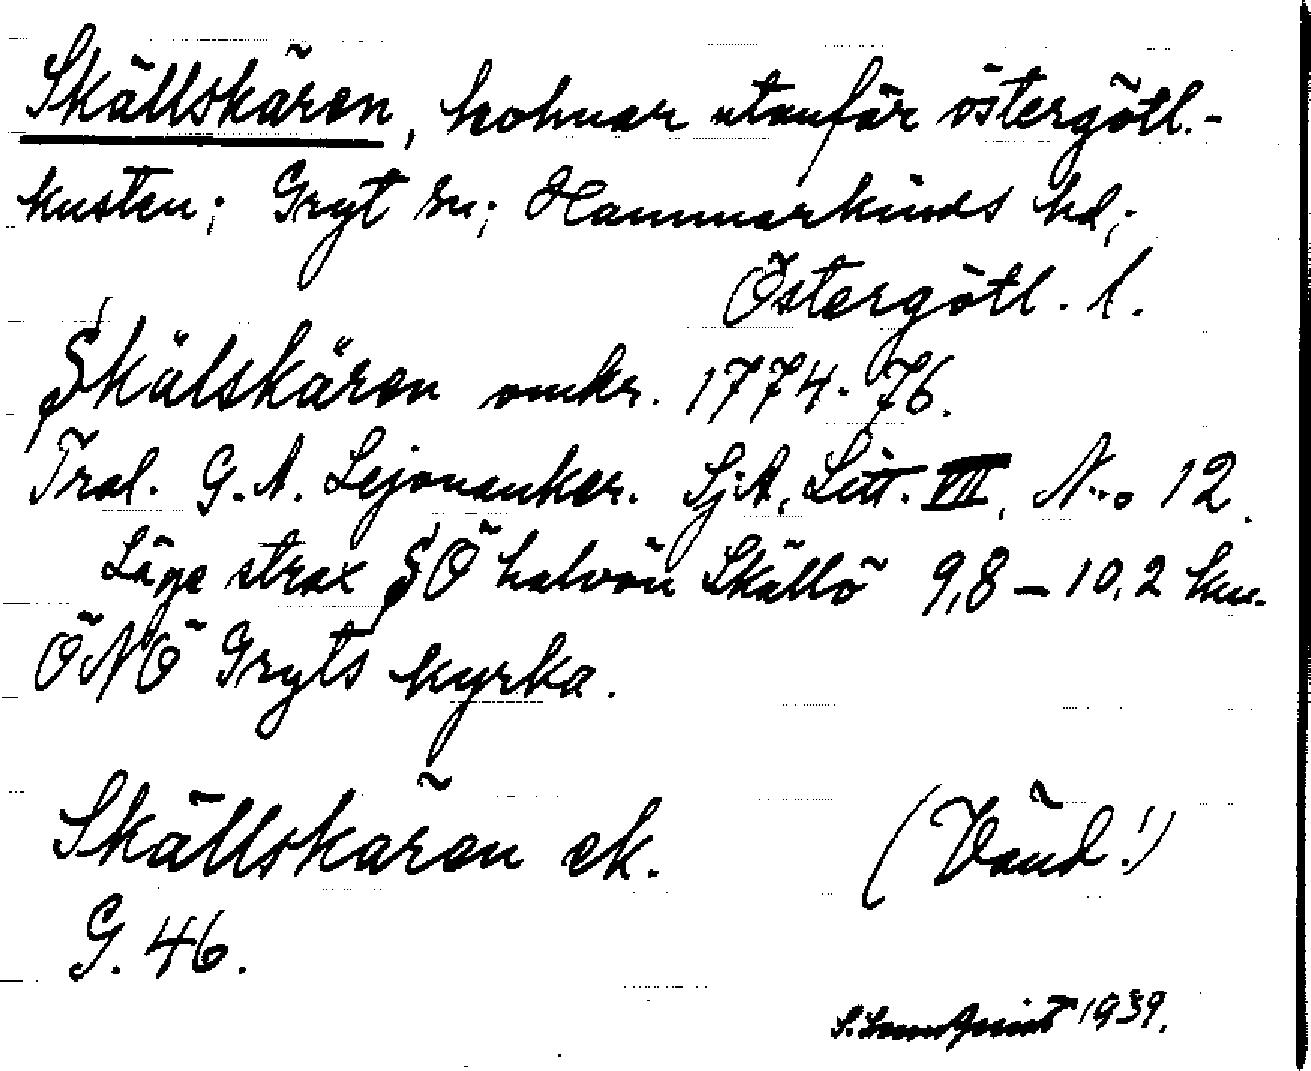 Skällskären, holmar utanför östergötl.-
kusten; Gryt sn; Hammarkinds hd;
Östergötl. l.
Skälskären omkr. 1774-76.
Tral. G.A. Lejonanker. Sj.A. Litt. VII, N:o 12.
Läge strax SÖ halvön Skällö 9,8 – 10,2 km.
ÖNÖ Gryts kyrka.
Skällskären ek.
G. 46.
(Vänd!)
1939.